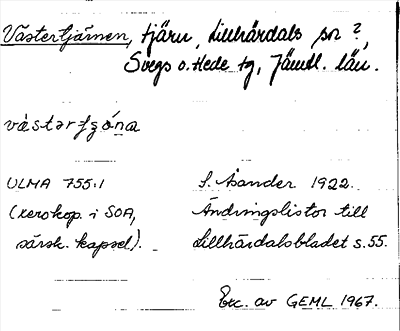 Västertjärnen, tjärn, Lillhärdals sn ?,
Svegs o. Hede tg, Jämtl. län.
västərʃǥɔ́na
ULMA 755:1
(xerokop. i SOA,
särsk. kapsel).
S. Åsander 1922.
Ändringslistor till
Lillhärdalsbladet s. 55.
Exc. av GEML 1967.